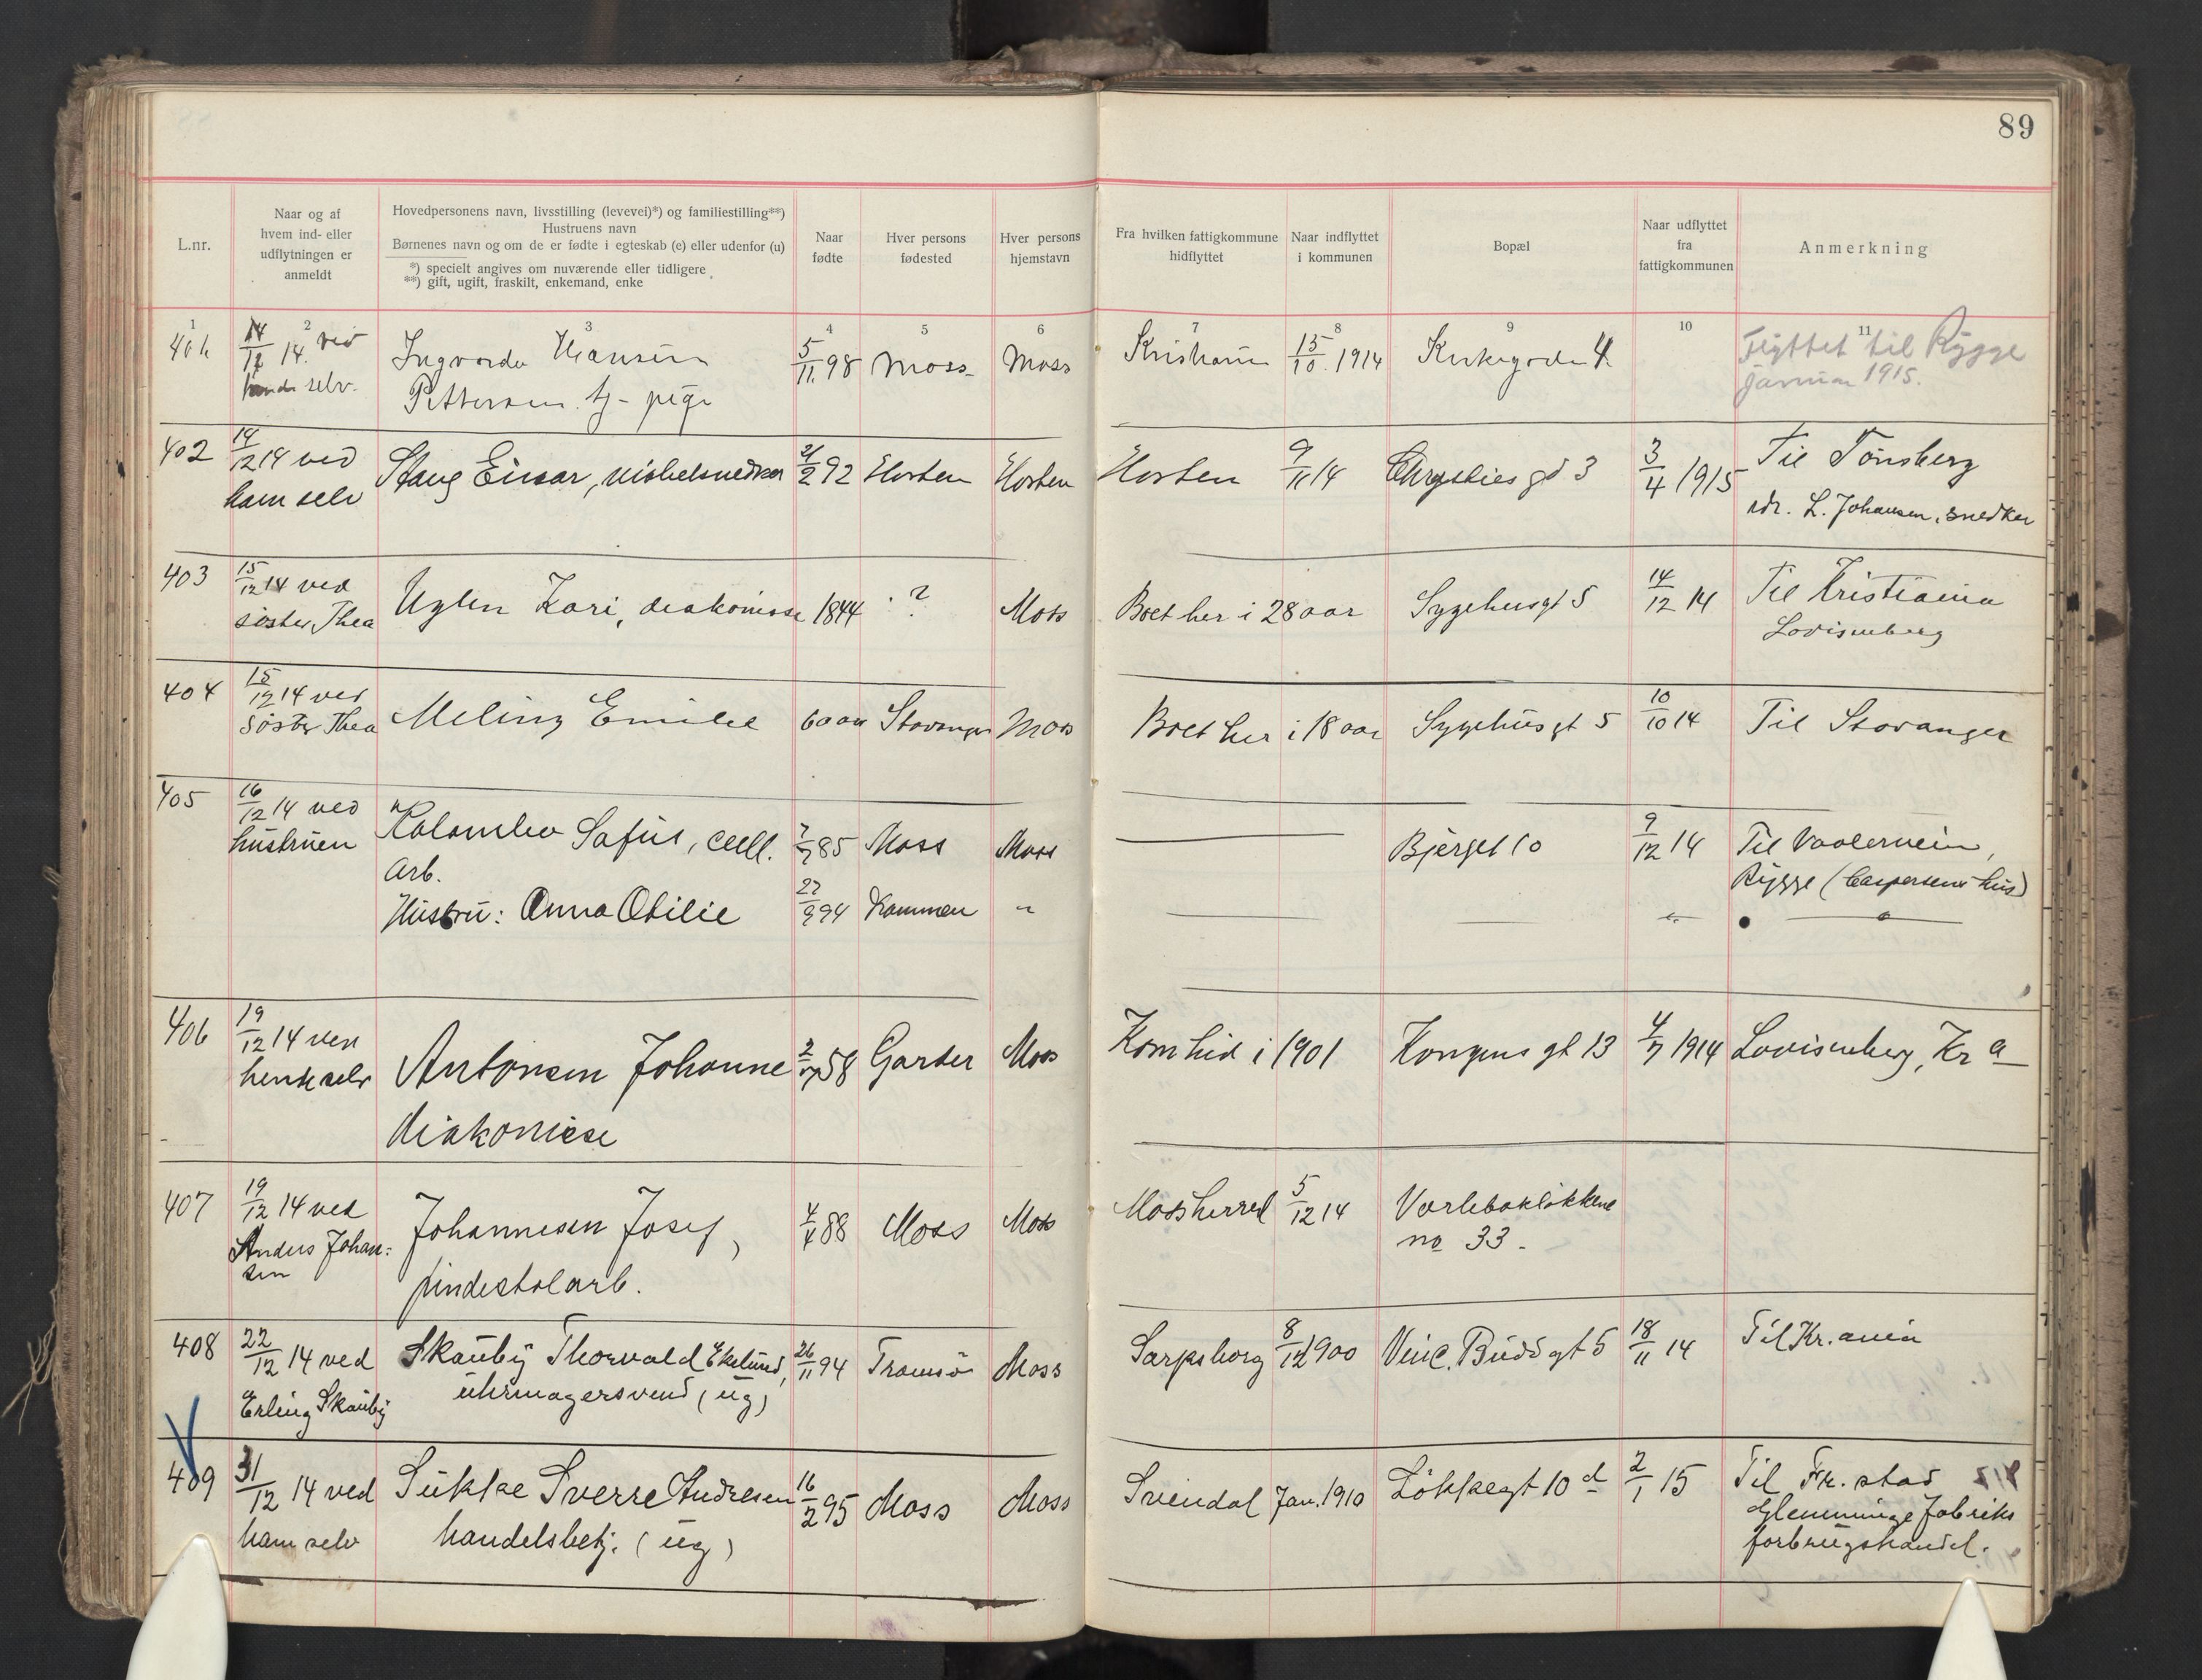 89
L.nr.
Naar og af
hvem ind- eller
udflytningen er
anmeldt
Hovedpersonens navn, livsstilling (levevei)*) og familiestilling**)
Hustruens navn
Børnenes navn og om de er fødte i egteskab (e) eller udenfor (u)
*) specielt angives om nuværende eller tidligere
**) gift, ugift, fraskilt, enkemand, enke
Naar
fødte
Hver persons
fødested
Hver persons
hjemstavn
Fra hvilken fattigkommune
hidflyttet
Naar indflyttet
i kommunen
Bopæl
Naar udflyttet
fra
fattigkommunen
Anmerkning
1 2 3 4 5 6 7 8 9 10 11
14/12 14. ved
selv.
Ingvarda Hansine
Pettersen. tj-pige
5/11. 98 Moss Moss
Kristiania 15/10. 1914 Kirkegaden 4.
Flyttet til Rygge
januar 1915.
402
14/12 14 ved
ham selv
Stang Einar, møbelsnedker
21/2 92 Horten Horten
Horten 9/11 14 Chrystiesgd 3 3/4 1915
Til Tönsberg
adr. L. Johansen, snedker
403
15/12 14 ved
söster Thea
Uglen Kari, diakonisse 1844 ? Moss
Boet her i 28 aar Sygehusgt 5 14/12 14
Til Kristiania
Lovisenberg
404
15/12 14 ved
Söster Thea
Meling Emilie 60 aar Stavanger Moss
Boet her i 18 aar Sygehusgt 5 10/10 14 Til Stavanger
405
16/12 14 ved
hustruen
Kolombo Safus, cell.
arb.
7/7 85 Moss Moss
Bjerget 10 9/12 14
Til Vaalerveien,
Rygge (Caspersens hus)
Hustru: Anna Otilie 27/9 94 Kammen "
406
19/12 14 ved
hende selv
Antonsen Johanne
diakonisse
2/7 58 Garder Moss
Kom hid i 1901 Kongensgt 13 4/7 1914 Lovisenberg, Kr a
407
19/12 14 ved
Anders Johan=
sen
Johannesen Josef,
pindestolarb.
4/4 88 Moss Moss
Moss herred 5/12 14
Varlebakløkkene
no 33.
408
22/12 14 ved
Erling Skauby
Skauby Thorvald Ekelund,
uhrmagersvend (ug)
26/11 94 Tromsö Moss
Sarpsborg 8/12 1900 Vinc. Buds gt 5 18/11 14 Til Kr.ania
409
31/12 14 ved
ham selv
Sukke Sverre Andresen
handelsbetj. (ug)
16/2 95 Moss Moss
Svendal Jan. 1910 Løkkegt 10 d 2/1 15
Til Fr. stad
Glemminge fabriks
forbrugshandel.